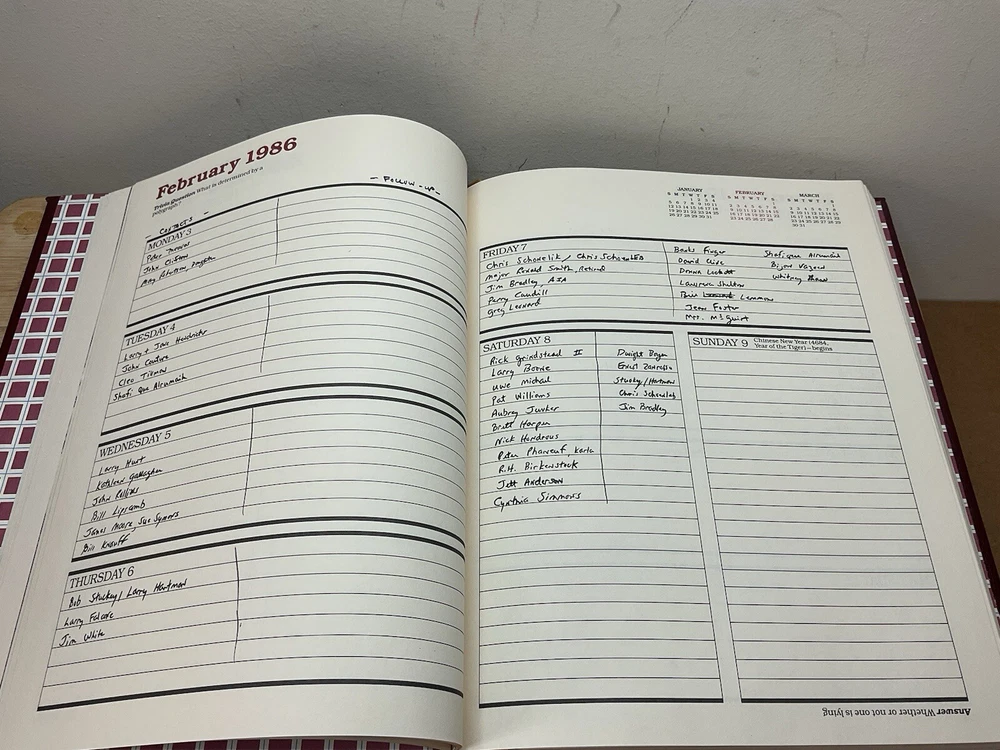 February 1986
Trivia Question What is determined by a
polygraph?
- CONTACTS -
- FOLLOW-UP -
MONDAY 3
Peter
John
TUESDAY 4
Larry + Jane Hendricks
John Couture
Cleo
Shafi Que
WEDNESDAY 5
Larry Hunt
Kathleen Gallagher
John Rollins
Bill Lipscomb
James Moore, Sue Symons
Bill Knauff
THURSDAY 6
Bob Stuckey / Larry Hartman
Larry Falcone
Jim White
JANUARY
S M T W T F S
1 2 3 4
5 6 7 8 9 10 11
12 13 14 15 16 17 18
19 20 21 22 23 24 25
26 27 28 29 30 31
FEBRUARY
S M T W T F S
1
2 3 4 5 6 7 8
9 10 11 12 13 14 15
16 17 18 19 20 21 22
23 24 25 26 27 28
MARCH
S M T W T F S
1
2 3 4 5 6 7 8
9 10 11 12 13 14 15
16 17 18 19 20 21 22
23 24 25 26 27 28 29
30 31
FRIDAY 7
Chris Schavelik / Chris
Major Ronald Smith, Retired
Jim Bradley AIA
Perry Caudill
Greg Leonard
Banks Finger
David Clive
Donna Lockett
Laurence Shelton
Lemmons
Jean Foster
Mrs. McGuirt
Shafique
Bijan
Whitney
SATURDAY 8
Rick Grindstead II
Larry Boone
Uwe Michael
Pat Williams
Aubrey Junker
Brett Harper
Nick Hondrous
Peter Pharreuf, Karla
R.H. Birkenstock
Jeff Anderson
Cynthia Simmons
Dwight Bryan
Ernest
Stuckey / Hartman
Chris
Jim Bradley
SUNDAY 9 Chinese New Year (4684,
Year of the Tiger)—begins
Answer Whether or not one is lying